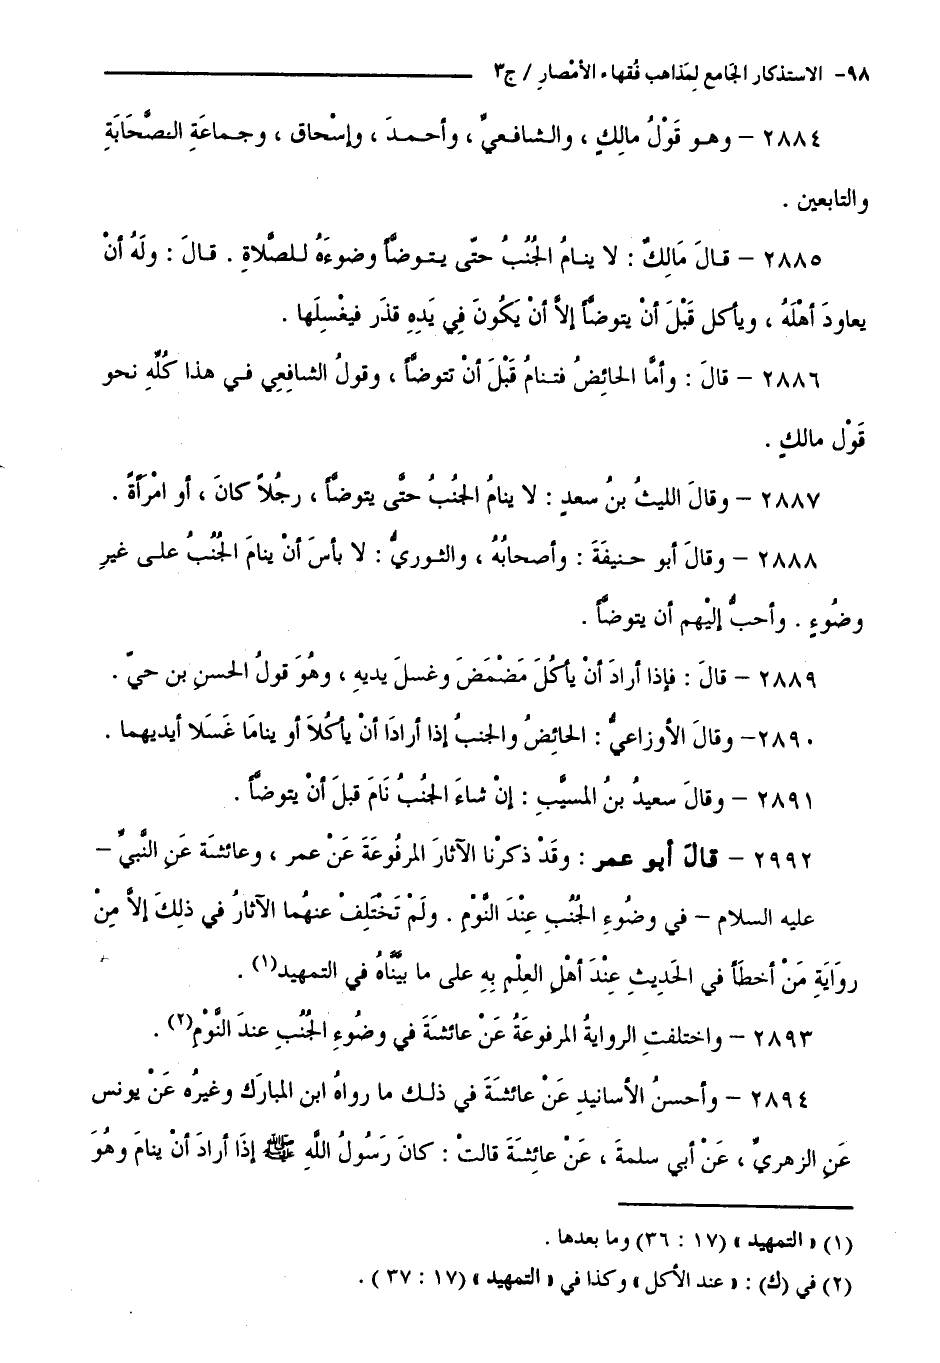 ٩٨- الاستذكار الجَامع لِمَذاهب فُقهاء الأمْصارِ / ج٣
٢٨٨٤ – وهو قَوْلُ مالِكٍ ، والشافعيِّ ، وأحمدَ ، وإسْحاق ، وجماعَةِ الصَّحَابَةِ
والتابعين .
٢٨٨٥ – قالَ مَالِكٌ : لا ينامُ الجُنُبُ حتّى يتوضَّأ وضوءَهُ للصَّلاةِ . قالَ : ولَهُ أنْ
يعاودَ أهْلَهُ ، ويأكل قَبْلَ أنْ يتوضَّأ إلاَّ أنْ يَكُونَ فِي يَدِهِ قذَر فيغْسِلَها .
٢٨٨٦ – قالَ : وأمَّا الحائِضُ فتنامُ قَبْلَ أنْ تتوضَّأ ، وقولُ الشافِعِي في هذا كُلِّهِ نحو
قَوْل مالكٍ .
٢٨٨٧ – وقالَ الليثُ بنُ سعدٍ : لا ينامُ الجُنُبُ حتَّى يتوضَّأ ، رجُلاً كانَ ، أو امْرَأةً .
٢٨٨٨ – وقالَ أبو حنيفَةَ : وأصحابُهُ ، والثوريُّ : لا بأسَ أنْ ينامَ الجُنُبُ على غيرِ
وضُوءٍ . وأحبُّ إليْهم أن يتوضَّأ .
٢٨٨٩ – قالَ : فإذا أرادَ أنْ يأكُلَ مَضْمَضَ وغسلَ يديهِ ، وهُوَ قولُ الحسنِ بن حيّ .
٢٨٩٠– وقالَ الأوزاعيُّ : الحائِضُ والجنبُ إذا أرادَا أنْ يأكُلاَ أو ينامَا غَسَلا أيديهما .
٢٨٩١ – وقالَ سعيدُ بنُ المسيَّبِ : إنْ شاءَ الجُنُبُ نَامَ قبلَ أنْ يتوضَّأ .
٢٩٩٢ – قالَ أبو عمر : وقَدْ ذكرْنا الآثارَ المرفُوعَةَ عَنْ عمر ، وعائشَة عَنِ النَّبيِّ –
عليه السلام – في وضُوءِ الجُنُبِ عِنْدَ النَّوْمِ . ولَمْ تَخْتَلِفْ عنهُما الآثارُ في ذلِكَ إلاَّ مِنْ
روَايَةِ مَنْ أخطَأ في الحَديثِ عِنْدَ أهْلِ العِلْمِ بِهِ على ما بيَّنَّاهُ في التمهيد(١) .
٢٨٩٣ – واختلفتِ الروايةُ المرفوعَةُ عَنْ عائشَةَ في وضُوءِ الجُنُبِ عندَ النَّوْمِ(٢) .
٢٨٩٤ – وأحسنُ الأسانيدِ عَنْ عائشَةَ في ذلك ما رواهُ ابن المبارَك وغيرُه عَنْ يونس
عَنِ الزهريِّ ، عَنْ أبي سلمةَ ، عَنْ عائِشَةَ قالتْ : كانَ رَسُولُ اللَّهِ ﷺ إذَا أرادَ أنْ ينامَ وهُوَ
(١) « التمهيد » (١٧ : ٣٦) وما بعدها .
(٢) في (ك) : « عند الأكل » وكذا في « التمهيد » (١٧ : ٣٧) .